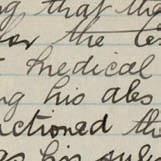 ng that the
for the te
medical
ng his abs
nctioned th
his su